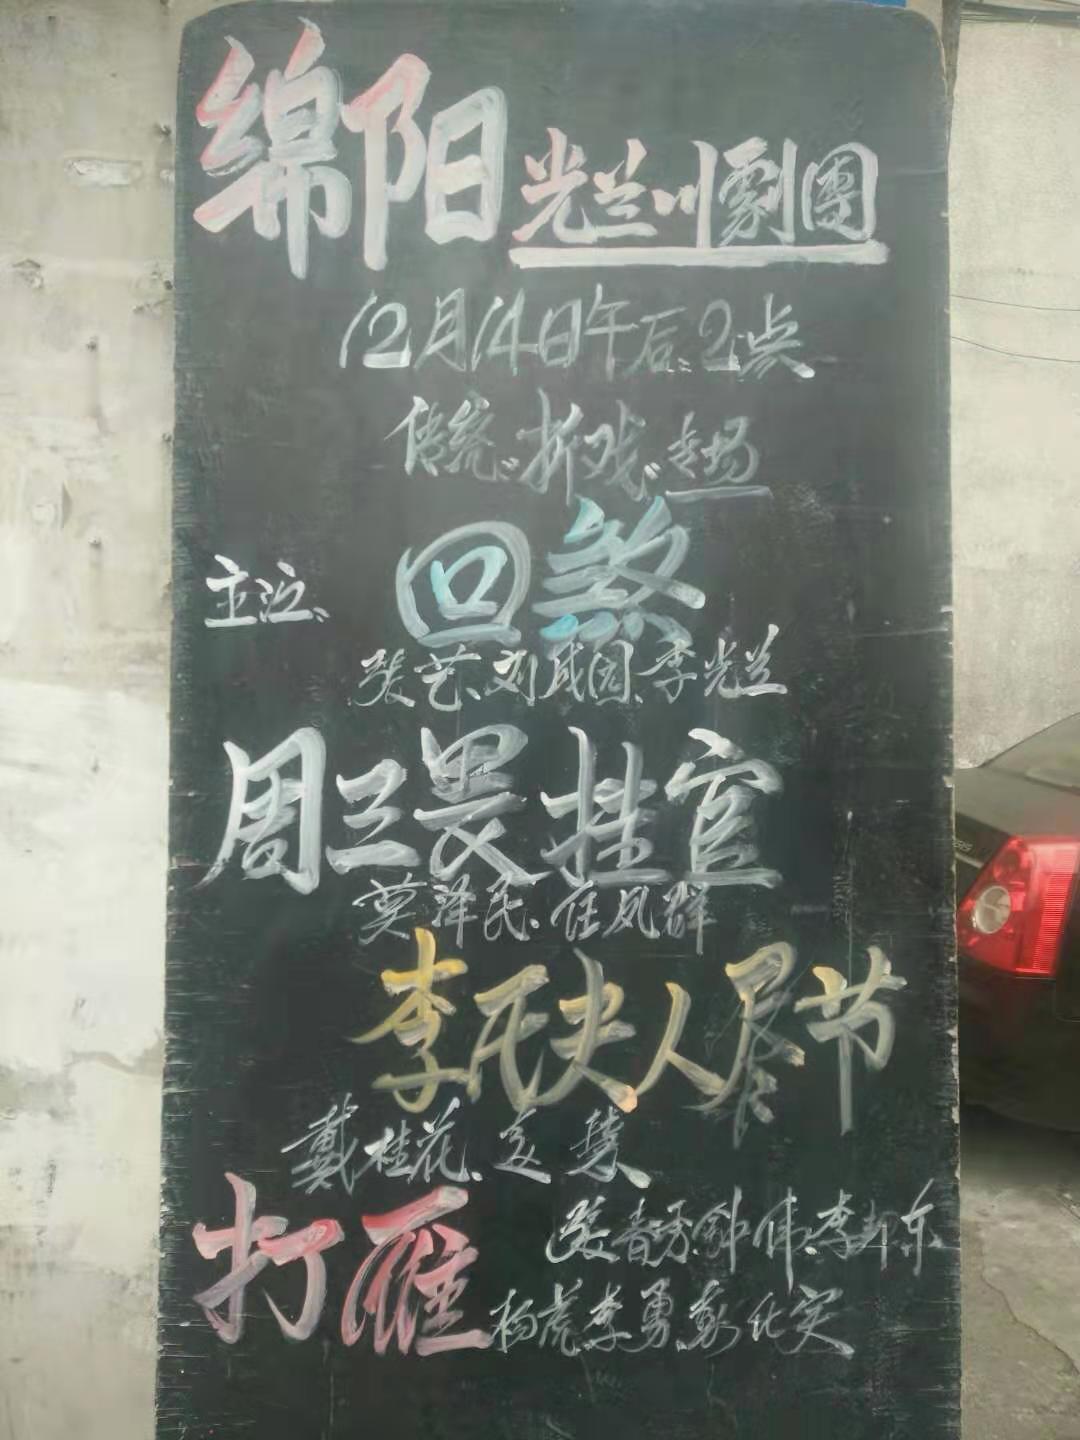 绵阳光兰川劇團
12月14日午后2点
传统折戏专场
回煞
主演
张艺、刘成国、李光兰
周三畏挂官
莫泽民、任凤群
李氏夫人尽节
戴桂花、文慧
打雁
张青秀、钟伟、李邦东
杨虎、李勇、彭化实